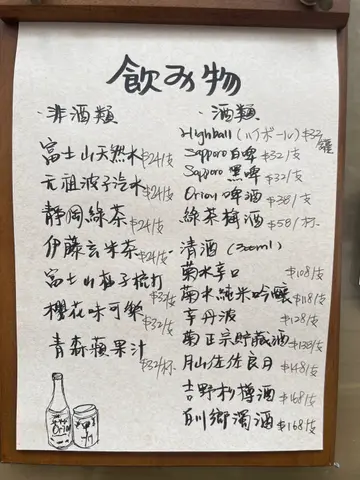 飲み物
·非酒類
富士山天然水 $24/支
元祖波子汽水 $24/支
靜岡綠茶 $24/支
伊藤玄米茶 $24/支
富士山柚子梳打 $32/支
櫻花味可樂 $32/支
青森蘋果汁 $32/杯
·酒類
Highball (ハイボール) $32/罐
Sapporo 白啤 $32/支
Sapporo 黑啤 $32/支
Orion 啤酒 $38/支
綠茶梅酒 $58/杯
·清酒 (300ml)
菊水辛口 $108/支
菊水純米吟釀 $118/支
辛丹波 $128/支
菊正宗貯藏酒 $138/支
月山佐佐良月 $148/支
吉野杉樽酒 $168/支
白川鄉濁酒 $168/支